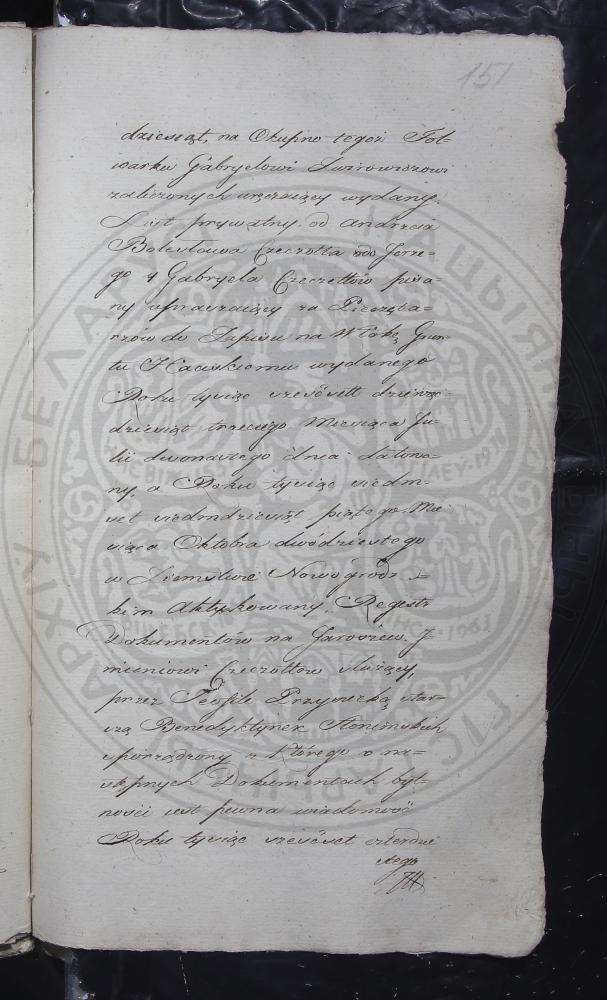 151
dziesiąt, na Okupno tegoż Fol=
warku Gabryelowi Swirowiczowi
zaliczonych wyrażaiący wydany.
List prywatny od Andrzeia
Bolesława Czeczotta do Jerze=
go y Gabryela Czeczottów pisa=
ny upraszaiący za Pieczęta=
rzów do Zapisu na Włokę Grun=
tu wydanego
Roku tysiąc sześćset dziewięć
dziesiąt trzeciego Miesiąca Ju=
lii dwónastego dnia datowa=
ny, a Roku tysiąc siedm=
set siedmdziesiąt piątego Mie
siąca Oktobra dwódziestego
w Ziemstwie Nowogrodz=
kim Aktykowany. Regestr
Dokumentów na Jaroszew. J=
mieniowi Czeczottów służący,
przez Teofilę Przysiecką star=
szą Benedyktynek Słonimskich
sporządzony z którego o na=
stępnych Dokumentach byt=
ności jest pewna wiadomość
Roku tysiąc sześćset czterdzie
stego